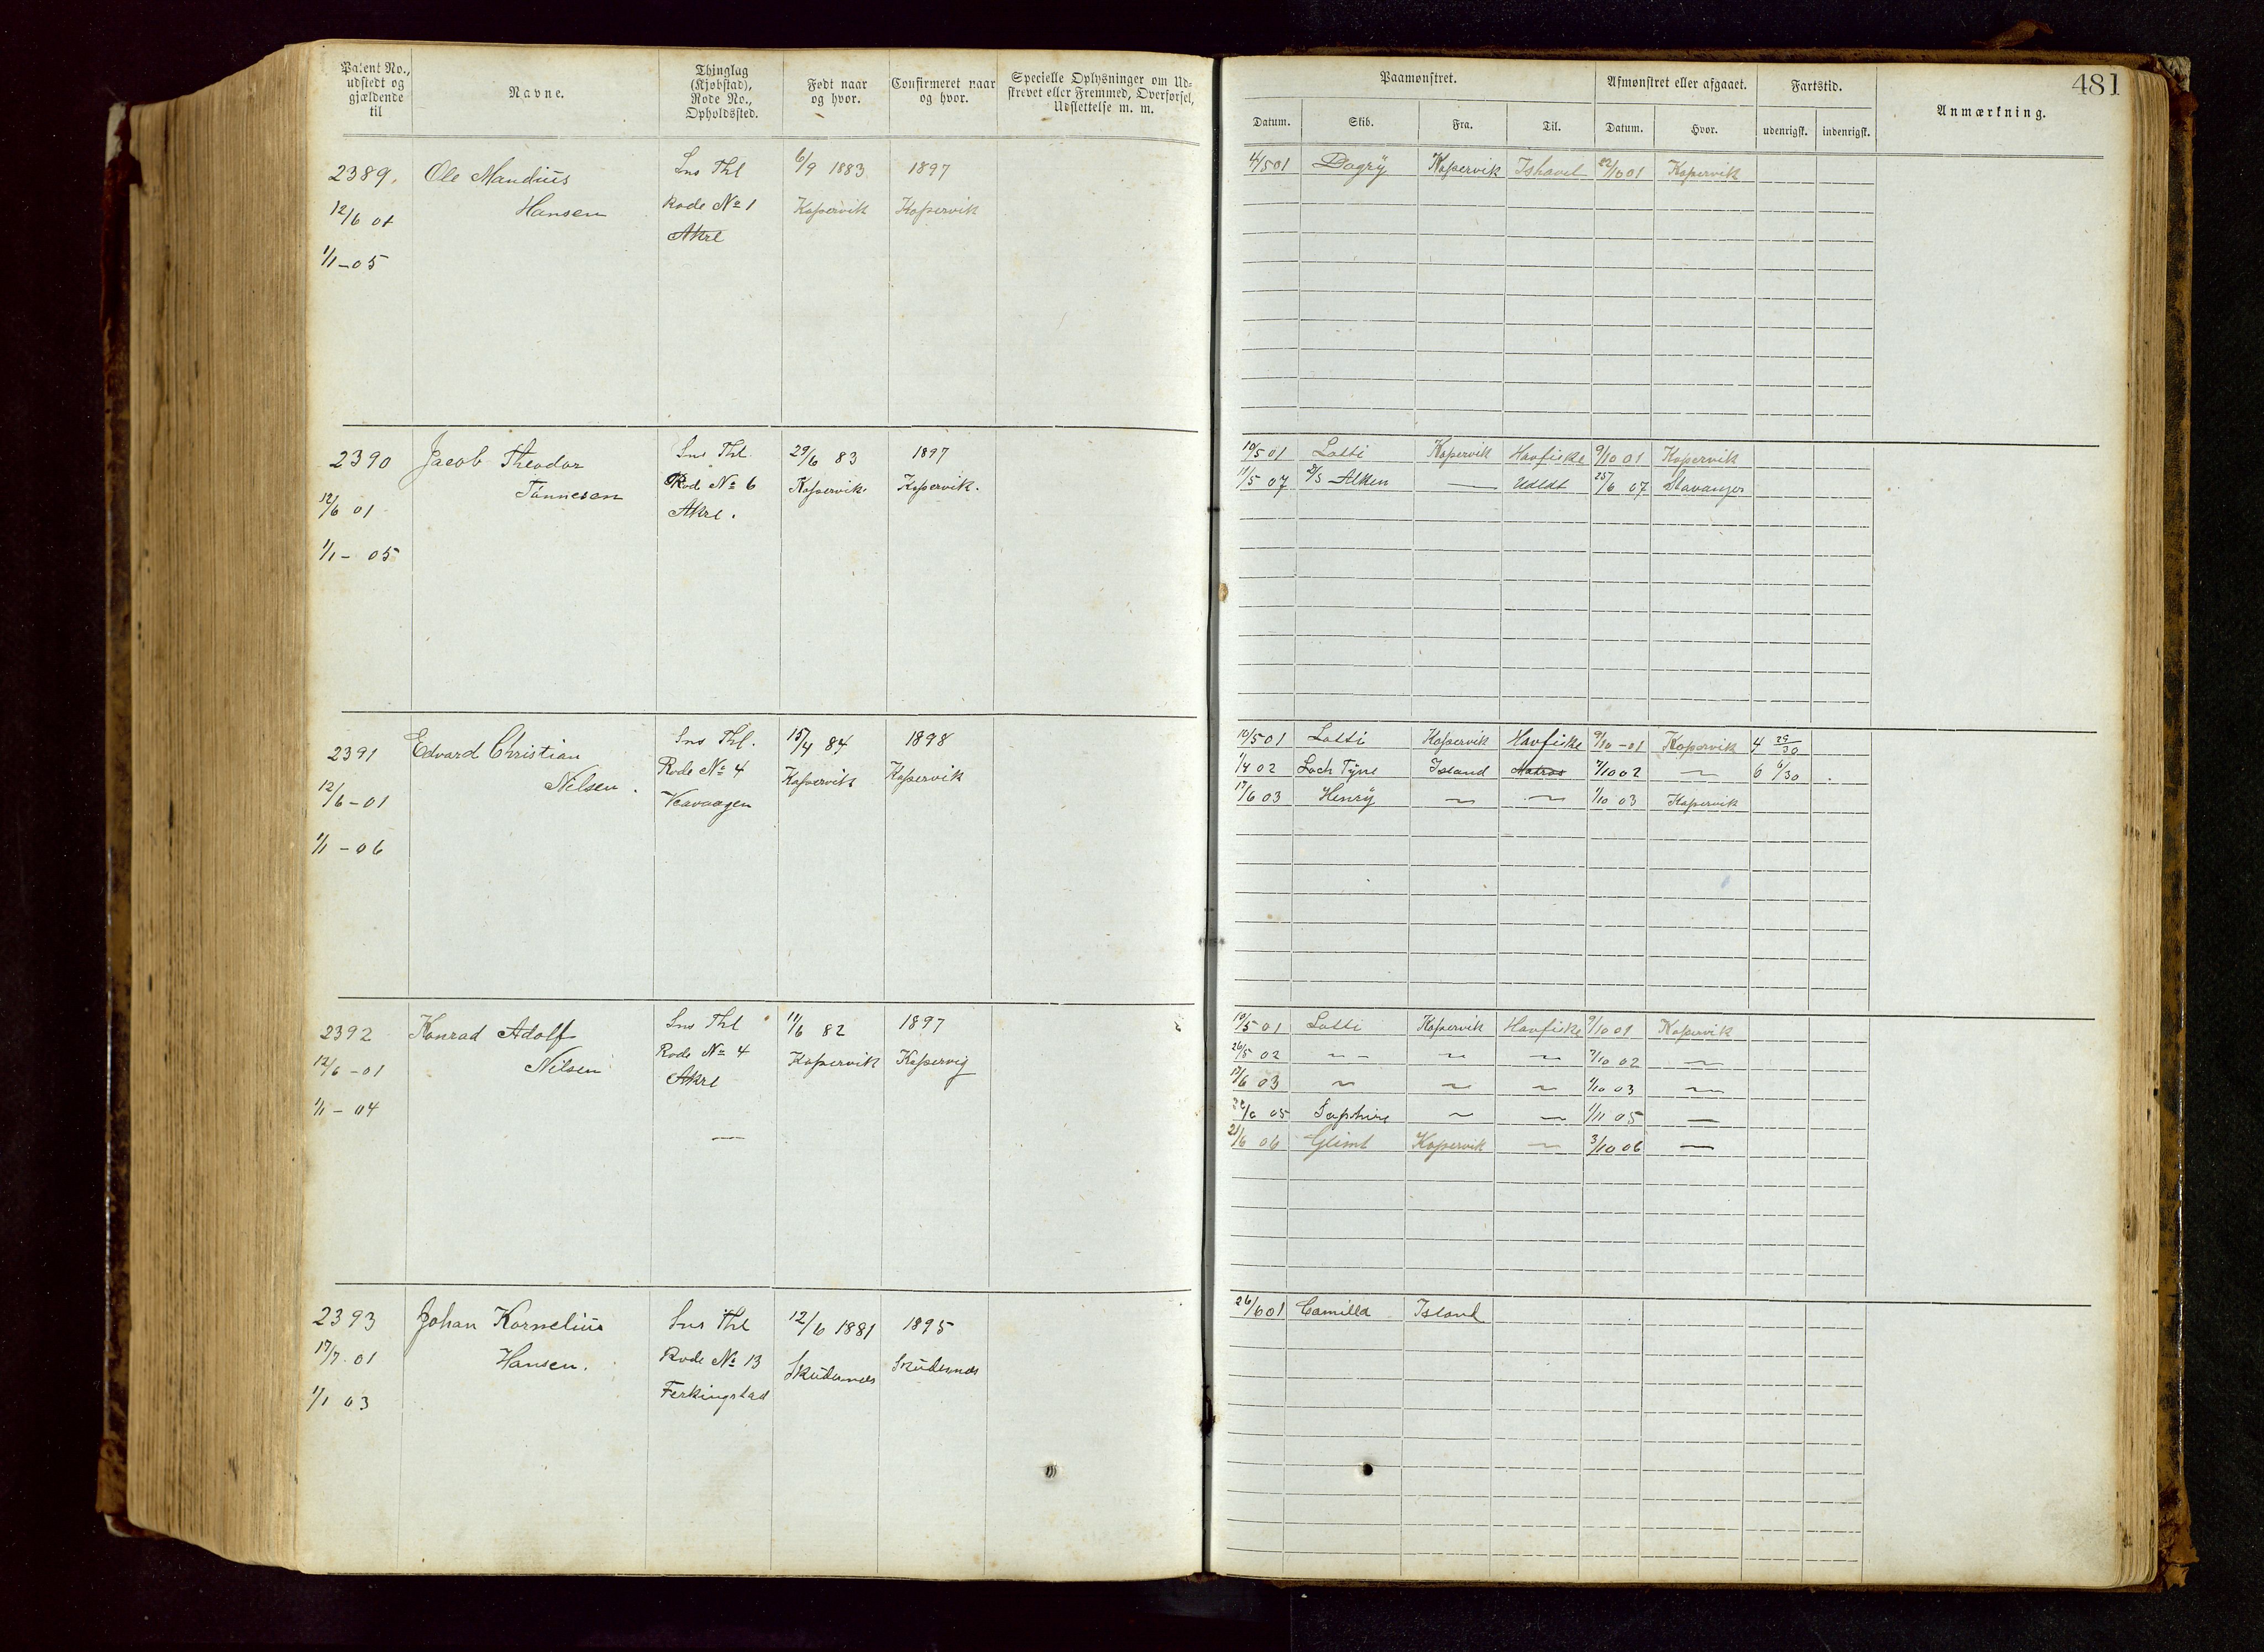 481
Patent No., udstedt og gjældende til
Navne.
Thinglag (Kjøbstad), Rode No., Opholdssted.
Født naar og hvor.
Confirmeret naar og hvor.
Specielle Oplysninger om Udskrevet eller Fremmed, Overførsel, Udslettelse m. m.
Paamønstret.
Afmønstret eller afgaaet.
Fartstid.
Anmærkning.
Datum. Skib. Fra. Til. Datum. Hvor. udenrigsk. indenrigsk.
2389. Ole Mandius Thl 6/9 1883 1897
12/6 01 Hansen Rode No 1 Kopervik Kopervik
Akre
1/1-05
4/5 01 Kopervik Ishavet 22/10 01 Kopervik
2390 Jacob Theodor Thl. 29/6 83 1897
Tønnesen Rode No 6 Kopervik. Kopervik.
12/6 01 Akre.
1/1- 05
10/5 01 Lotti Kopervik Havfiske 9/10 01 Kopervik
11/5 07 D/S Alken — Udldt 25/6 07 Stavanger
2391 Edvard Christian Thl. 15/4 84 1898
Nelsen. Rode No 4 Kopervik Kopervik
12/6-01 Veavaagen
1/1-06
10/5 01 Lotti Kopervik Havfiske 9/10-01 Kopervik 4 29/30
1/4 02 Loch Tyne Island 7/10 02 — 6 6/30
17/6 03 Henry — — 1/10 03 Kopervik
2392 Konrad Adolf Thl 11/6 82 1897
12/6-01 Nilsen Rode No 4 Kopervik Kopervig
Akre
1/1-04
—
10/5 01 Lotti Kopervik Havfiske 9/10 01 Kopervik
26/5 02 — — — 7/10 02 —
17/6 03 — — — 1/10 03 —
05 Saphire — — 1/11 05 —
21/6 06 Glimt Kopervik — 3/10 06 —
2393 Johan Kornelius Thl 12/6 1881 1895
17/7 01 Hansen. Rode No 13 Skudesnes Skudesnes
1/1 03 Ferkingstad
26/6 01 Camilla Island